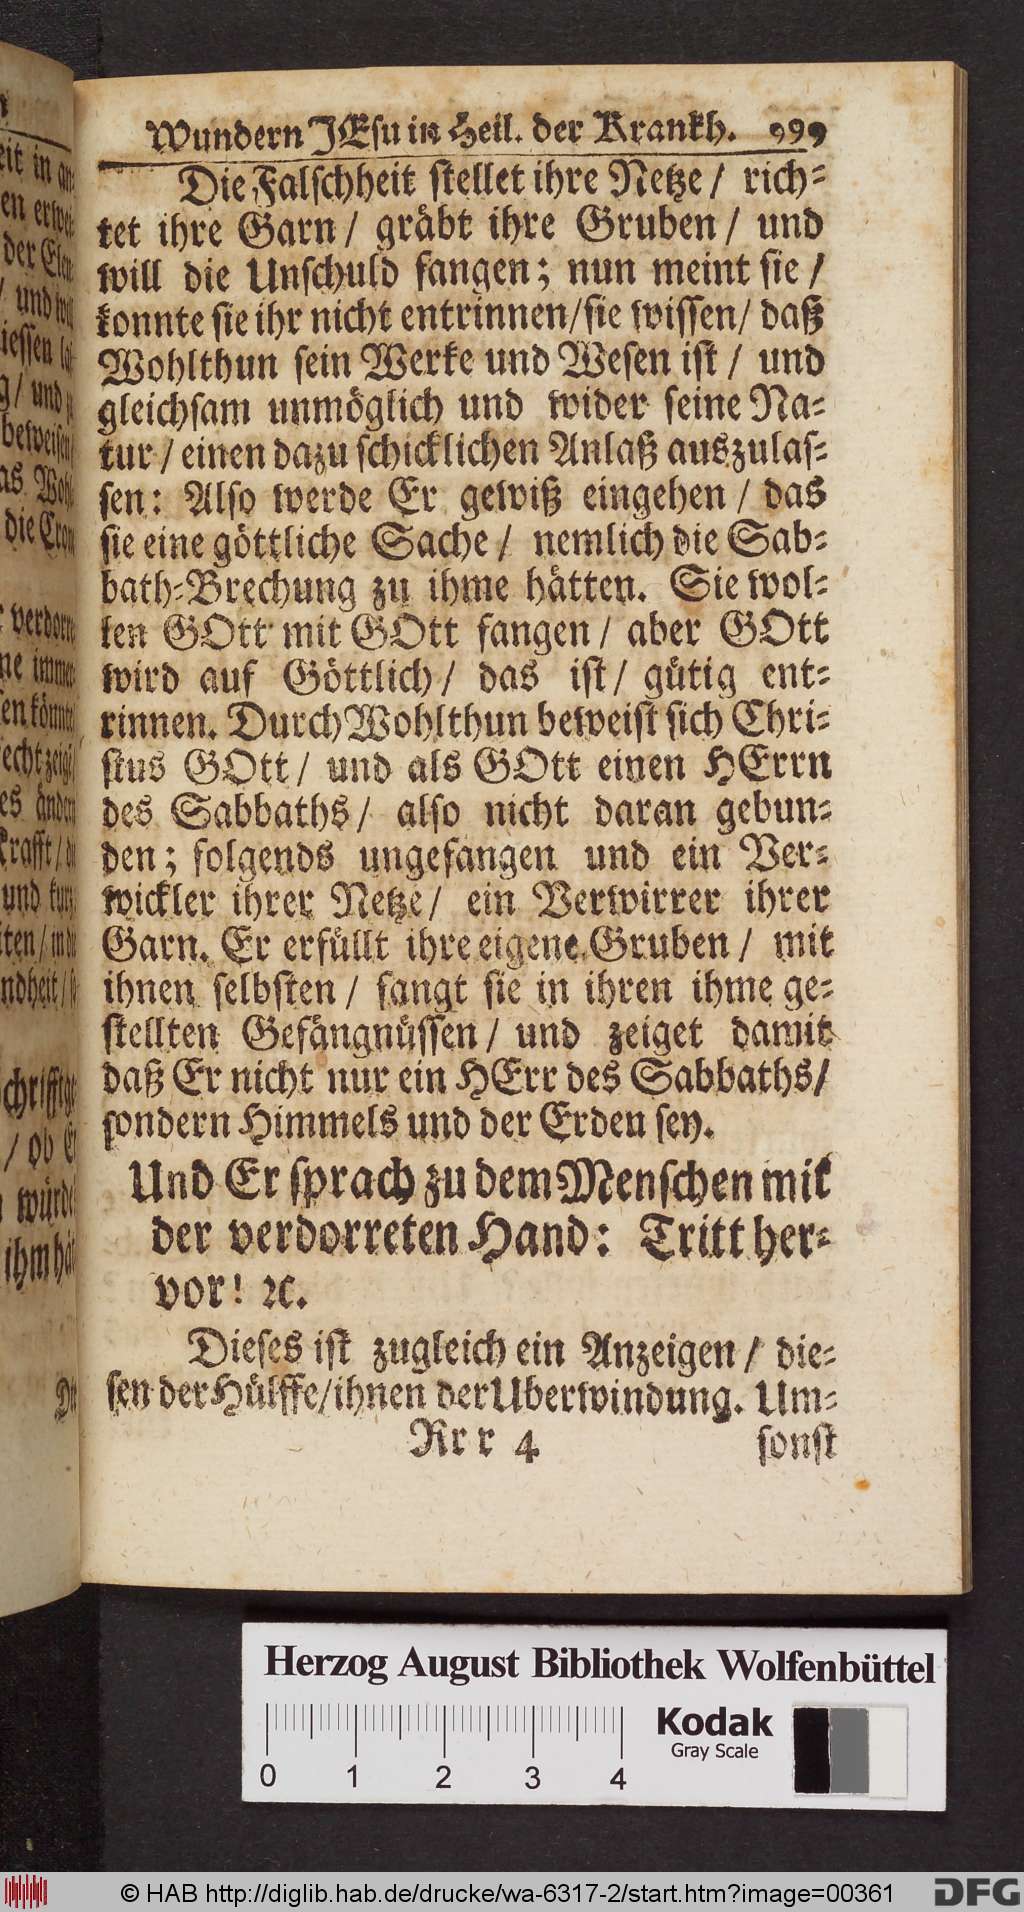 Wundern JEsu in Heil. der Krankh. 999
Die Falschheit stellet ihre Netze / rich-
tet ihre Garn / gräbt ihre Gruben / und
will die Unschuld fangen; nun meint sie /
konnte sie ihr nicht entrinnen / sie wissen / daß
Wohlthun sein Werke und Wesen ist / und
gleichsam unmöglich und wider seine Na-
tur / einen dazu schicklichen Anlaß auszulas-
sen: Also werde Er gewiß eingehen / das
sie eine göttliche Sache / nemlich die Sab-
bath-Brechung zu ihme hätten. Sie wol-
len GOtt mit GOtt fangen / aber GOtt
wird auf Göttlich / das ist / gütig ent-
rinnen. Durch Wohlthun beweist sich Chri-
stus GOtt / und als GOtt einen HErrn
des Sabbaths / also nicht daran gebun-
den; folgends ungefangen und ein Ver-
wickler ihrer Netze / ein Verwirrer ihrer
Garn. Er erfüllt ihre eigene Gruben / mit
ihnen selbsten / fangt sie in ihren ihme ge-
stellten Gefängnüssen / und zeiget damit
daß Er nicht nur ein HErr des Sabbaths /
sondern Himmels und der Erden sey.
Und Er sprach zu dem Menschen mit
der verdorreten Hand: Tritt her-
vor! ꝛc.
Dieses ist zugleich ein Anzeigen / die-
sen der Hülffe / ihnen der Uberwindung. Um-
Rr r 4 sonst
Herzog August Bibliothek Wolfenbüttel
Kodak
Gray Scale
0 1 2 3 4
© HAB http://diglib.hab.de/drucke/wa-6317-2/start.htm?image=00361
DFG